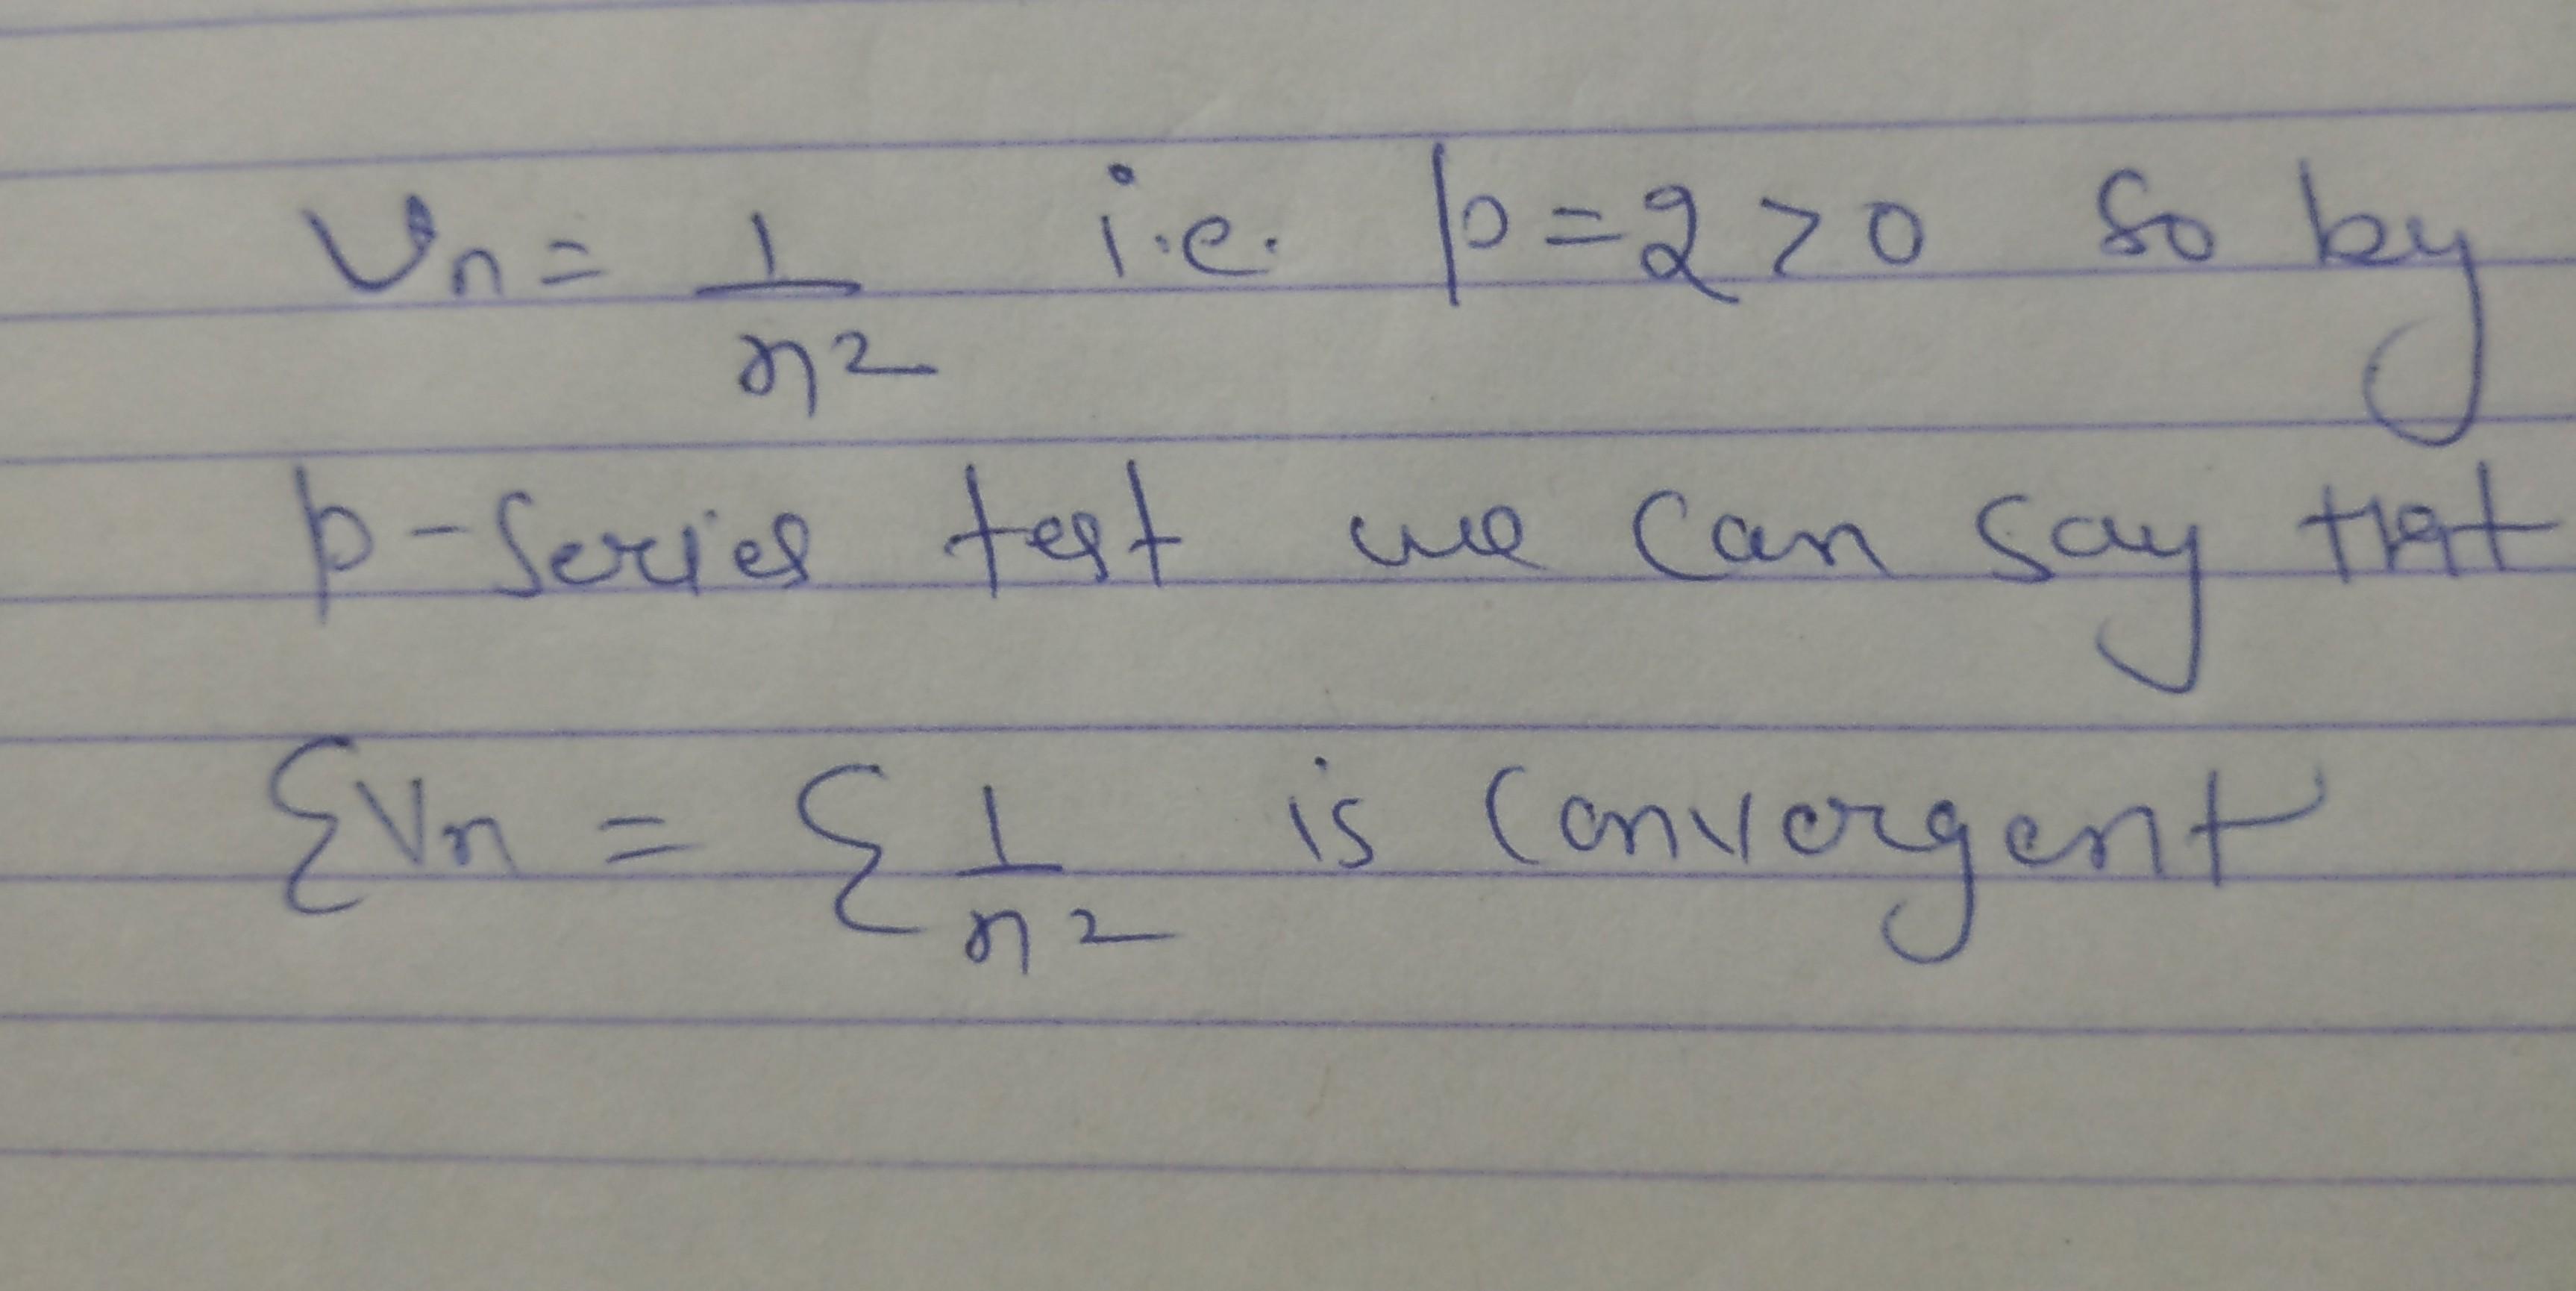 Vn = 1/n² i.e. p = 2 > 0 So by
p-Series test we can say that
ΣVn = Σ 1/n² is Convergent